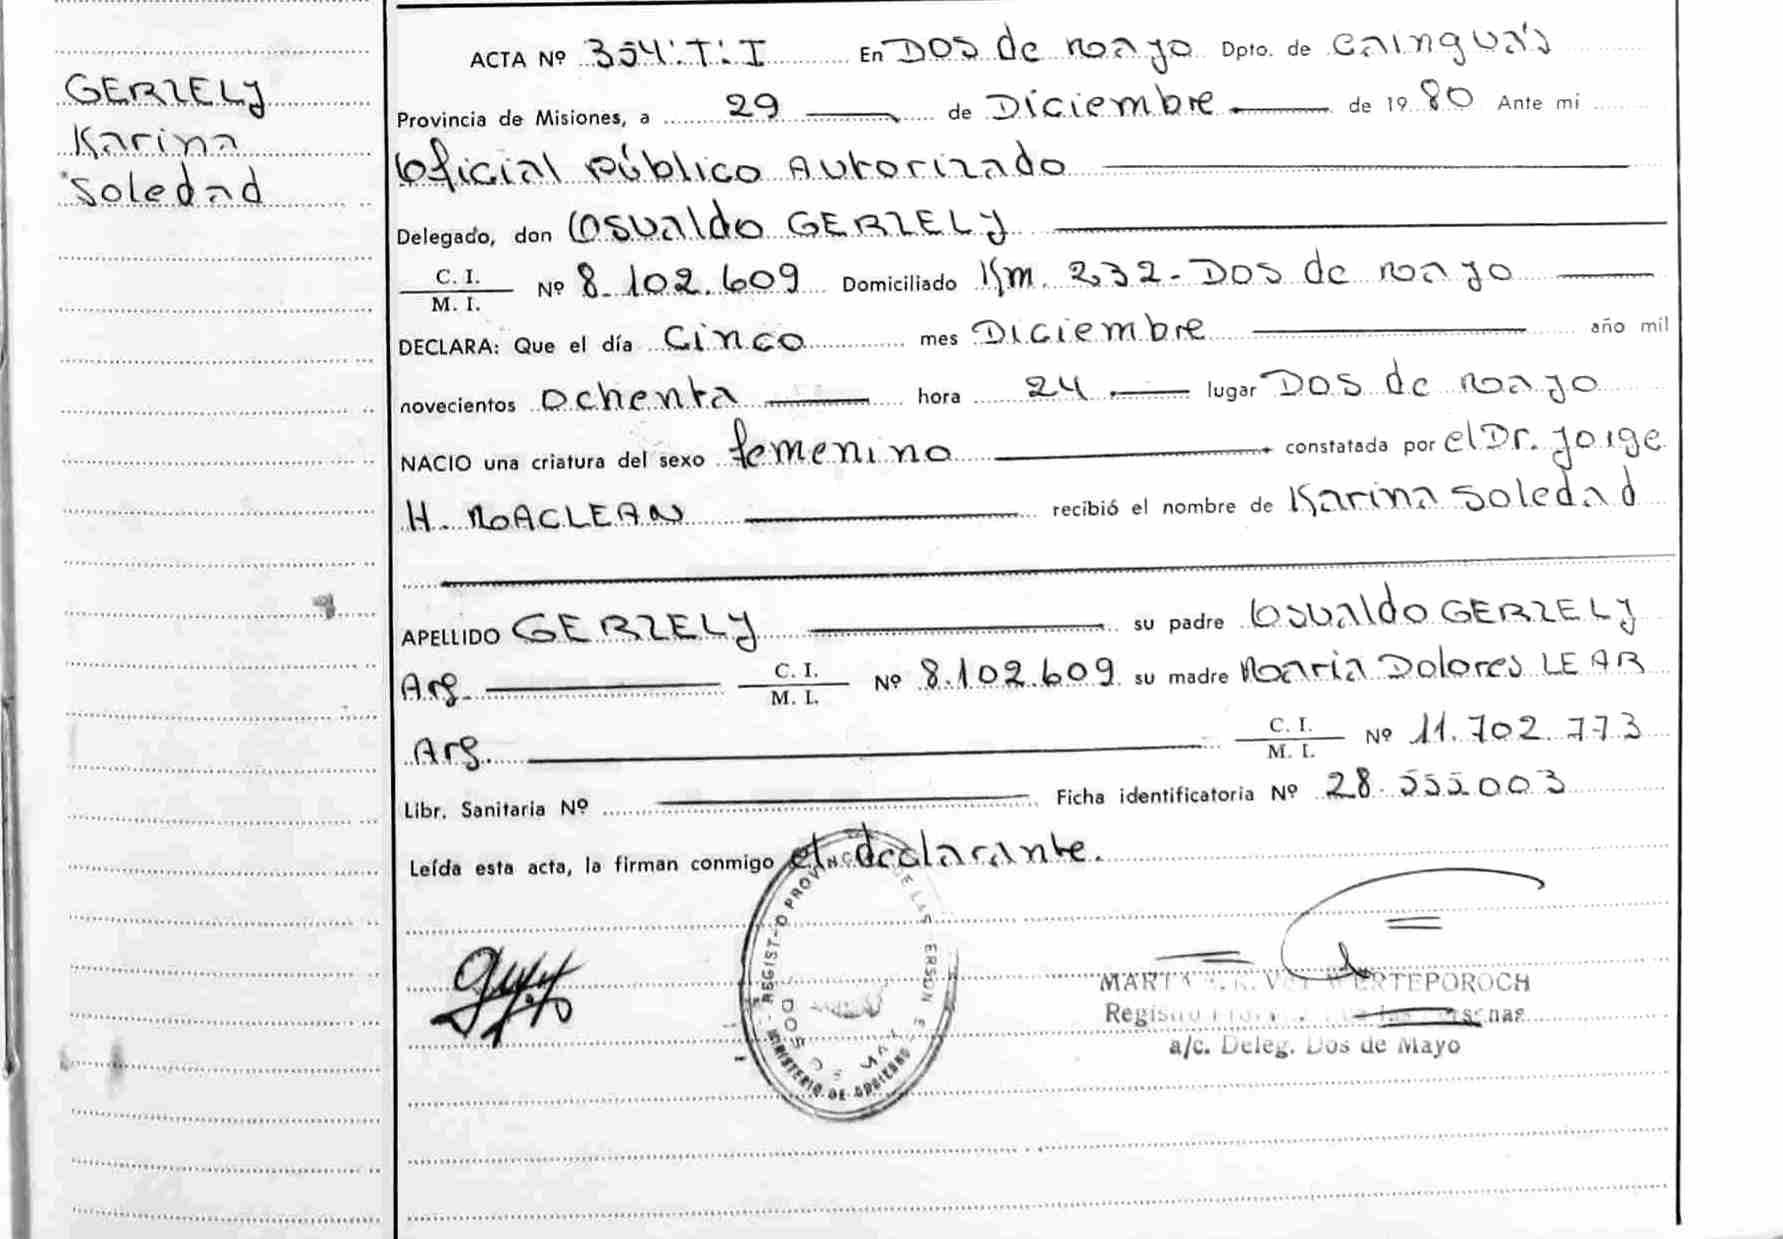 GERZELY
Karina
Soledad
ACTA Nº 354:T:I En Dos de mayo Dpto. de Cainguás
Provincia de Misiones, a 29 de Diciembre de 1980 Ante mi
Oficial Público Autorizado
Delegado, don Osvaldo GERZELY
C. I.
M. I. Nº 8.102.609 Domiciliado Km. 232-Dos de mayo
DECLARA: Que el día Cinco mes Diciembre año mil
novecientos ochenta hora 24 lugar Dos de mayo
NACIO una criatura del sexo femenino constatada por el Dr. Jorge
H. MACLEAN recibió el nombre de Karina Soledad
APELLIDO GERZELY su padre Osvaldo GERZELY
Arg. C. I.
M. I. Nº 8.102.609 su madre Maria Dolores LEAR
Arg. C. I.
M. I. Nº 11.702.773
Libr. Sanitaria Nº Ficha identificatoria Nº 28.555.003
Leída esta acta, la firman conmigo el declarante.
MINISTERIO DE GOBIERNO
DOS DE MAYO
a/c. Deleg. Dos de Mayo